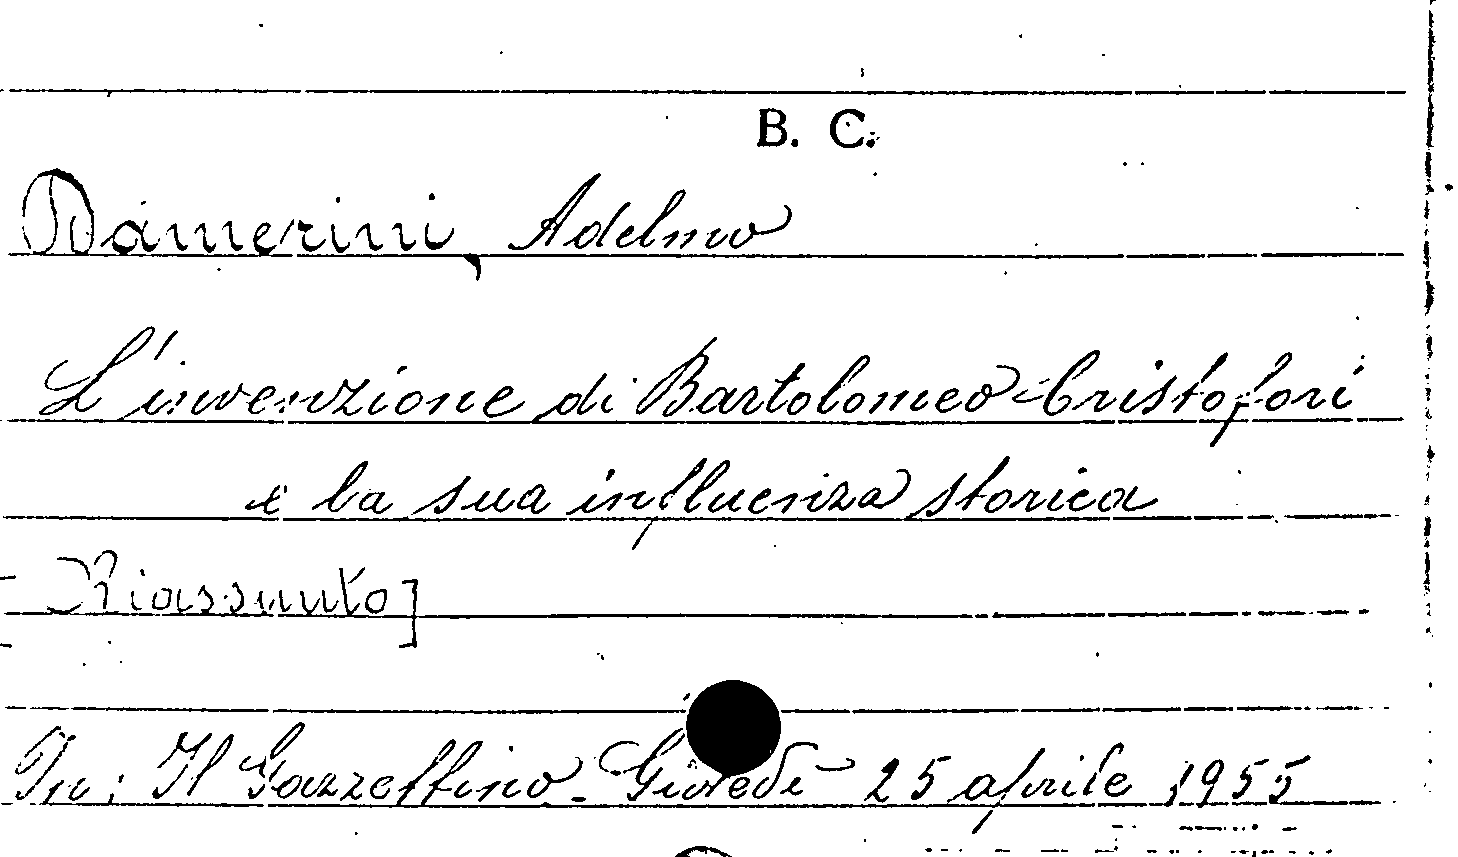 B. C.
Damerini, Adelmo
L'invenzione di Bartolomeo Cristofori
e la sua influenza storica
[Riassunto]
In: Il Gazzettino - Giovedì 25 aprile 1955